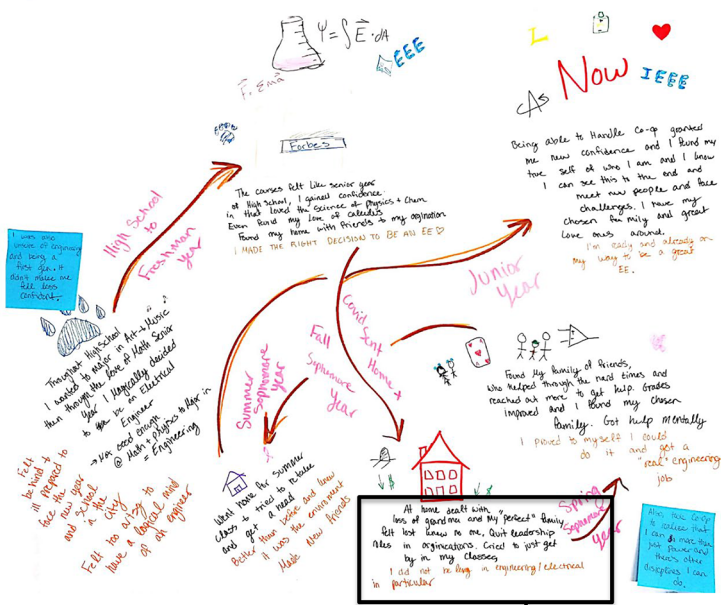 Ψ = ∫ E⃗ · dA
IEEE
F = Σma
Forbes
The courses felt like senior year
of High School, I gained confidence
in that loved the science of physics + chem
Even found my love of calculus
Found my home with friends to my orgination
I MADE THE RIGHT DECISION TO BE AN EE ♡
High School
to
Freshman
Year
I was also
unsure of engineering
and being a
first gen. It
didn't make me
fell less
confident.
Throughout High School
I wanted to major in Art + Music
then through the love of Math Senior
Year I Magically decided
to be an Electrical
Engineer
→ Not good enough
@ Math + physics to Major in
= Engineering
Felt
behind +
unprepared to
face the
new year
and school
in the
city
Felt too artsy to
have a logical mind
of an engineer
Summer
Sophomore
Year
Went home for summer
class + tried to retake
and get a head
Better than before and knew
I was the enviroment
Made New Friends
Fall
Sophomore
Year
Covid Sent Home +
At home dealt with
loss of grandma and my "perfect" family
felt lost knew no me. Quit leadership
roles in orginizations. Cried to just get
by in my classes
I did not belong in engineering/electrical
in particular
Spring
Sophomore
Year
Found My family of friends,
who helped through the hard times and
reached out more to get help. Grades
improved and I found my chosen
family. Got help mentally
I proved to myself I could
do it and got a
"real" engineering
job
Junior
Year
L
As
Now
IEEE
Being able to Handle Co-op granted
me new confidence and I found my
true self of who I am and I know
I can see this to the end and
meet new people and face
challenges. I have my
chosen family and great
love ones around.
I'm ready and already on
my way to be a great
EE.
Also, take co-op
to realize that
I can do more than
just power and
there's other
disciplines I can
do.